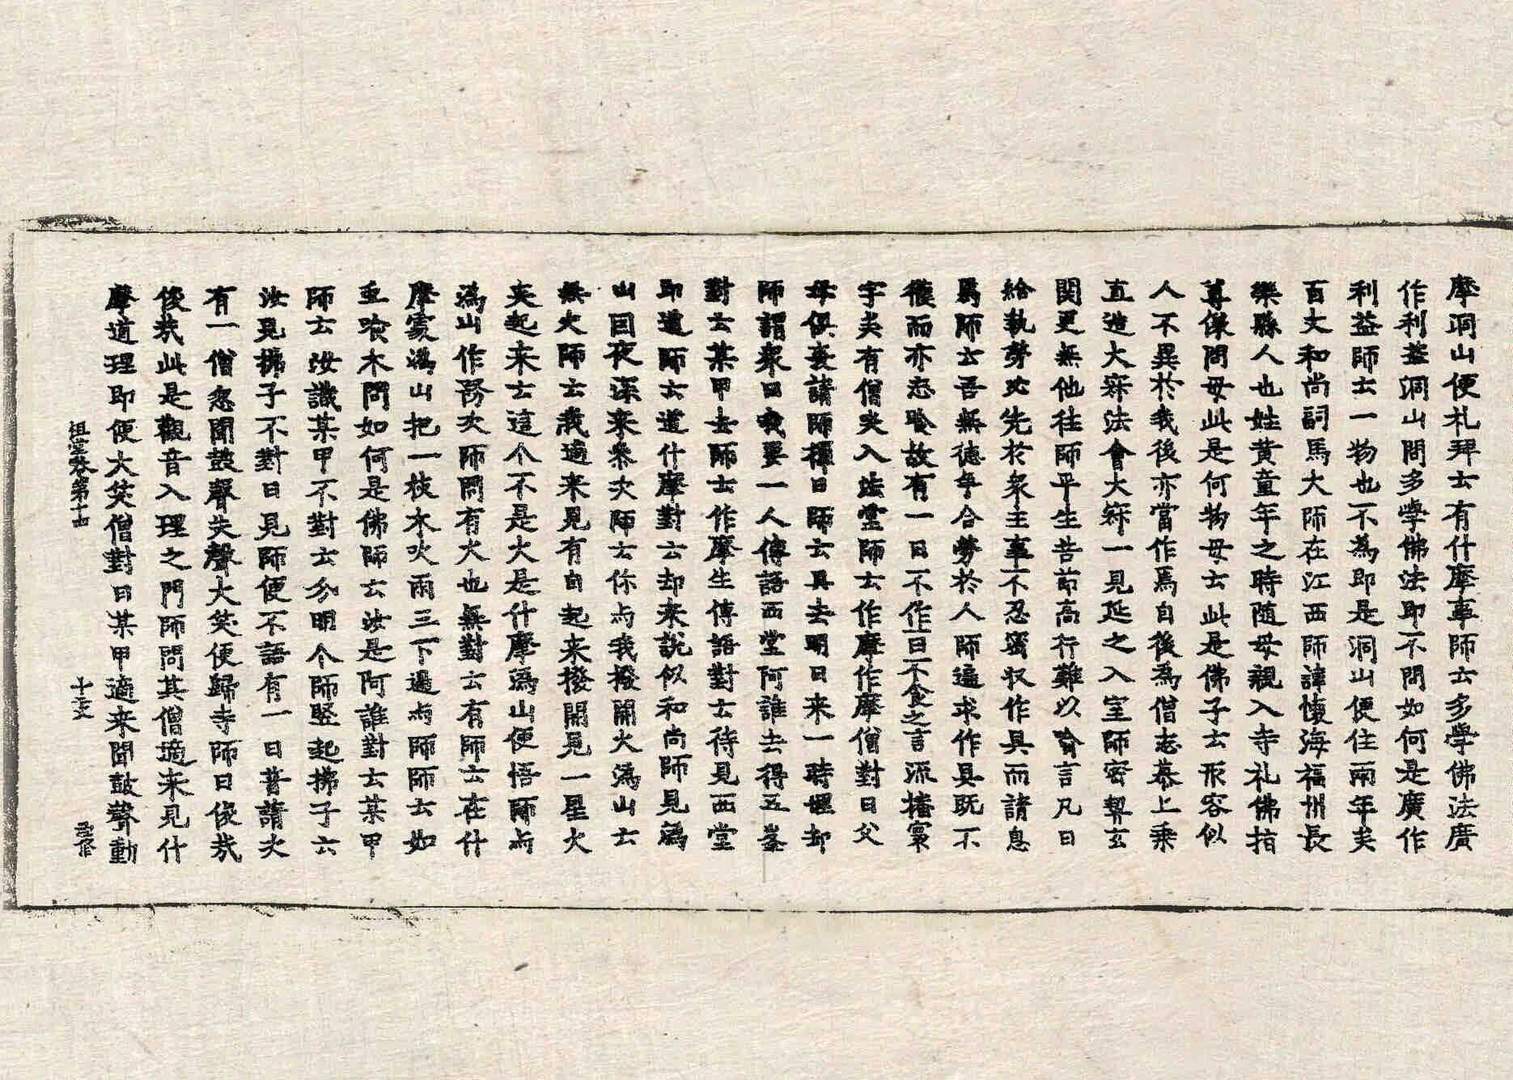 摩洞山便礼拜士有什摩事師士多學佛法廣
作利益洞山問多學佛法即不問如何是廣作
利益師士一物也不為即是洞山便住兩年矣
百丈和尚嗣馬大師在江西師諱懷海福州長
樂縣人也姓黃童年之時随母親入寺礼佛指
尊像問母此是何物母士此是佛子士形容似
人不異於我後亦當作焉自後為僧志慕上乘
直造大寂法會大寂一見延之入室師密契玄
関更無他往師平生苦節高行難以喻言凡日
給執勞必先於衆主事不忍密収作具而請息
焉師士吾無德爭合勞於人師遍求作具既不
獲而亦忘飡故有一日不作一日不食之言流播寰
宇矣有僧哭入法堂師士作摩作摩僧對曰父
母俱喪請師擇日師士且去明日来一時埋却
師謂衆曰我要一人傳語西堂阿誰去得五峯
對士某甲去師士作摩生傳語對士待見西堂
即道師士道什摩對士却来說似和尚師見溈
山因夜深来參次師士你与我撥開火溈山士
無火師士我適来見有自起来撥開見一星火
夾起来士這个不是火是什摩溈山便悟師与
溈山作務次師問有火也無對士有師士在什
摩處溈山把一枝木吹兩三下過与師師士如
虫喰木問如何是佛師士汝是阿誰對士某甲
師士汝識某甲不對士分明个師竪起拂子士
汝見拂子不對曰見師便不語有一日普請次
有一僧忽聞鼓聲失聲大笑便歸寺師曰俊哉
俊哉此是觀音入理之門師問其僧適来見什
摩道理即便大笑僧對曰某甲適来聞鼓聲動
祖堂卷第十四